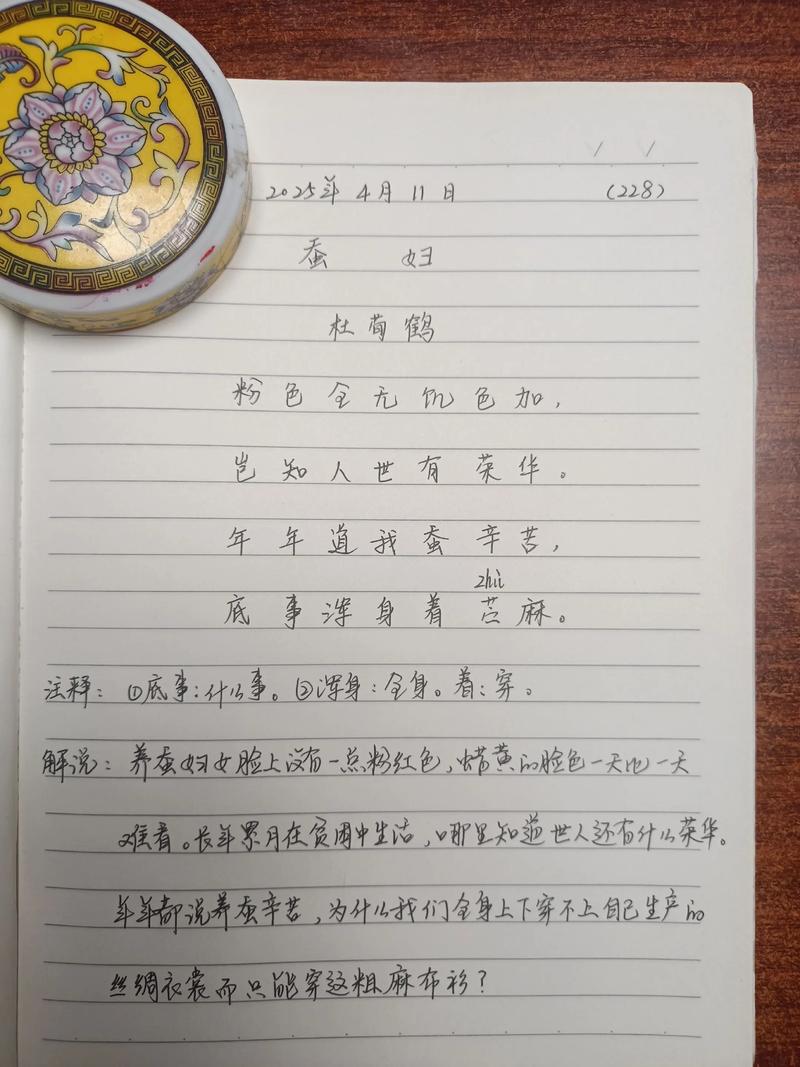 2025年4月11日 (228)
蚕妇
杜荀鹤
粉色全无饥色加,
岂知人世有荣华。
年年道我蚕辛苦,
zhù
底事浑身着苎麻。
注释：①底事：什么事。②浑身：全身。着：穿。
解说：养蚕妇女脸上没有一点粉红色，蜡黄的脸色一天比一天
难看。长年累月在贫困中生活，哪里知道世人还有什么荣华。
年年都说养蚕辛苦，为什么我们全身上下穿不上自己生产的
丝绸衣裳而只能穿这粗麻布衫？